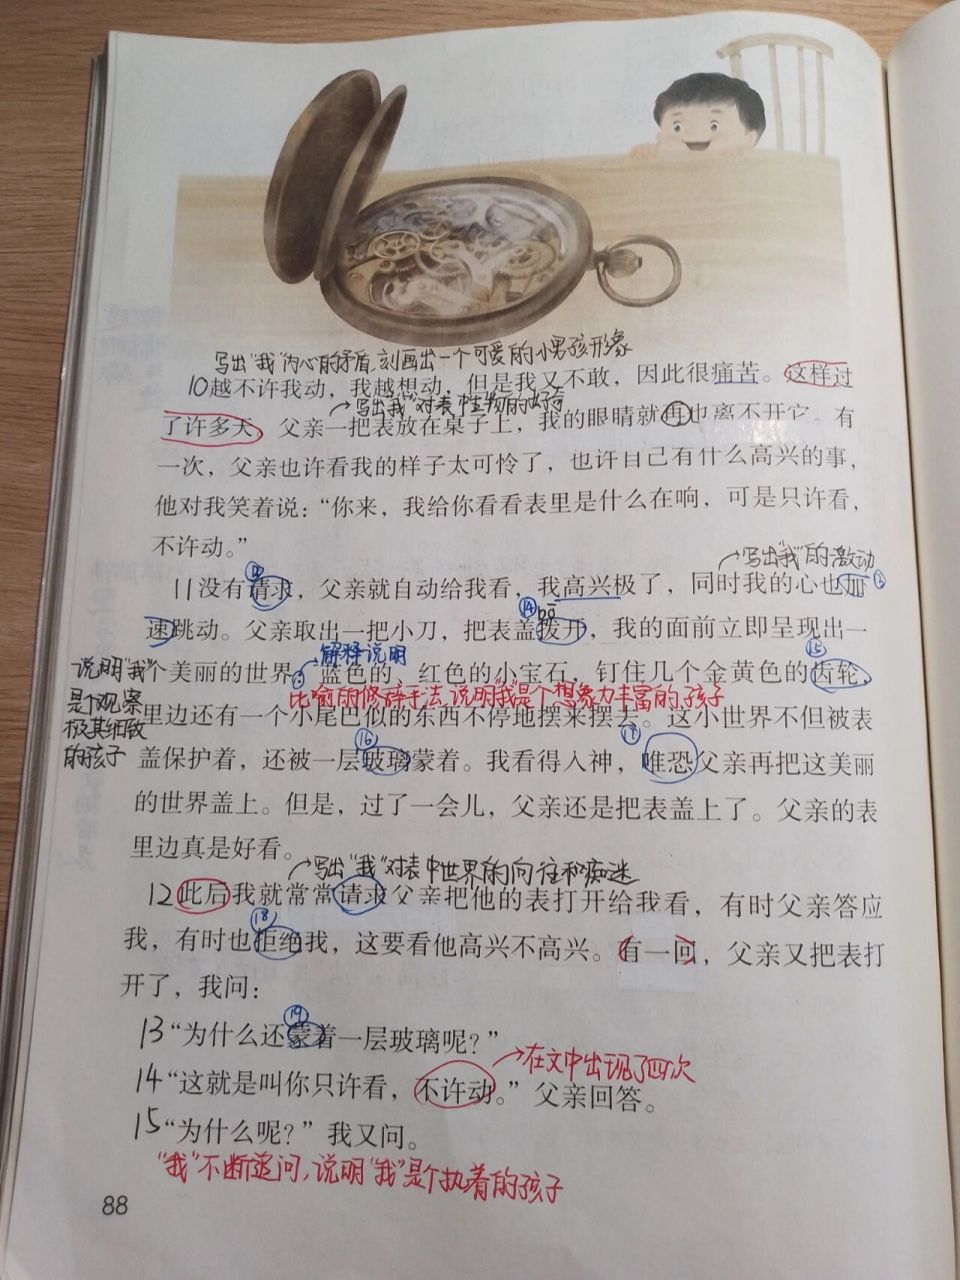 写出"我"内心的矛盾,刻画出一个可爱的小男孩形象
10越不许我动，我越想动，但是我又不敢，因此很痛苦。这样过
→写出"我"对表中生物的好奇
了许多天。父亲一把表放在桌子上，我的眼睛就再也离不开它。有
一次，父亲也许看我的样子太可怜了，也许自己有什么高兴的事，
他对我笑着说：“你来，我给你看看表里是什么在响，可是只许看，
不许动。”
→写出"我"的激动
11没有请求，父亲就自动给我看，我高兴极了，同时我的心也加
⑭ bō
速跳动。父亲取出一把小刀，把表盖拨开，我的面前立即呈现出一
→解释说明 ⑮
个美丽的世界：蓝色的、红色的小宝石，钉住几个金黄色的齿轮，
比喻的修辞手法,说明"我"是个想象力丰富的孩子
说明"我"
是个观察
极其细致
的孩子
里边还有一个小尾巴似的东西不停地摆来摆去。这小世界不但被表
⑯ ⑰
盖保护着，还被一层玻璃蒙着。我看得入神，唯恐父亲再把这美丽
的世界盖上。但是，过了一会儿，父亲还是把表盖上了。父亲的表
里边真是好看。
→写出"我"对表中世界的向往和痴迷
12此后我就常常请求父亲把他的表打开给我看，有时父亲答应
⑱
我，有时也拒绝我，这要看他高兴不高兴。有一回，父亲又把表打
开了，我问：
⑲
13“为什么还蒙着一层玻璃呢？”
→在文中出现了四次
14“这就是叫你只许看，不许动。”父亲回答。
15“为什么呢？”我又问。
"我"不断追问,说明"我"是个执着的孩子
88